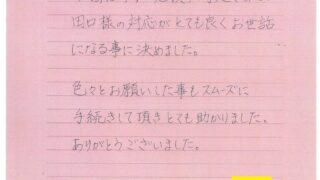 田口様の対応がとても良くお世話
になる事に決めました。
色々とお願いした事もスムーズに
手続きして頂きとても助かりました。
ありがとうございました。